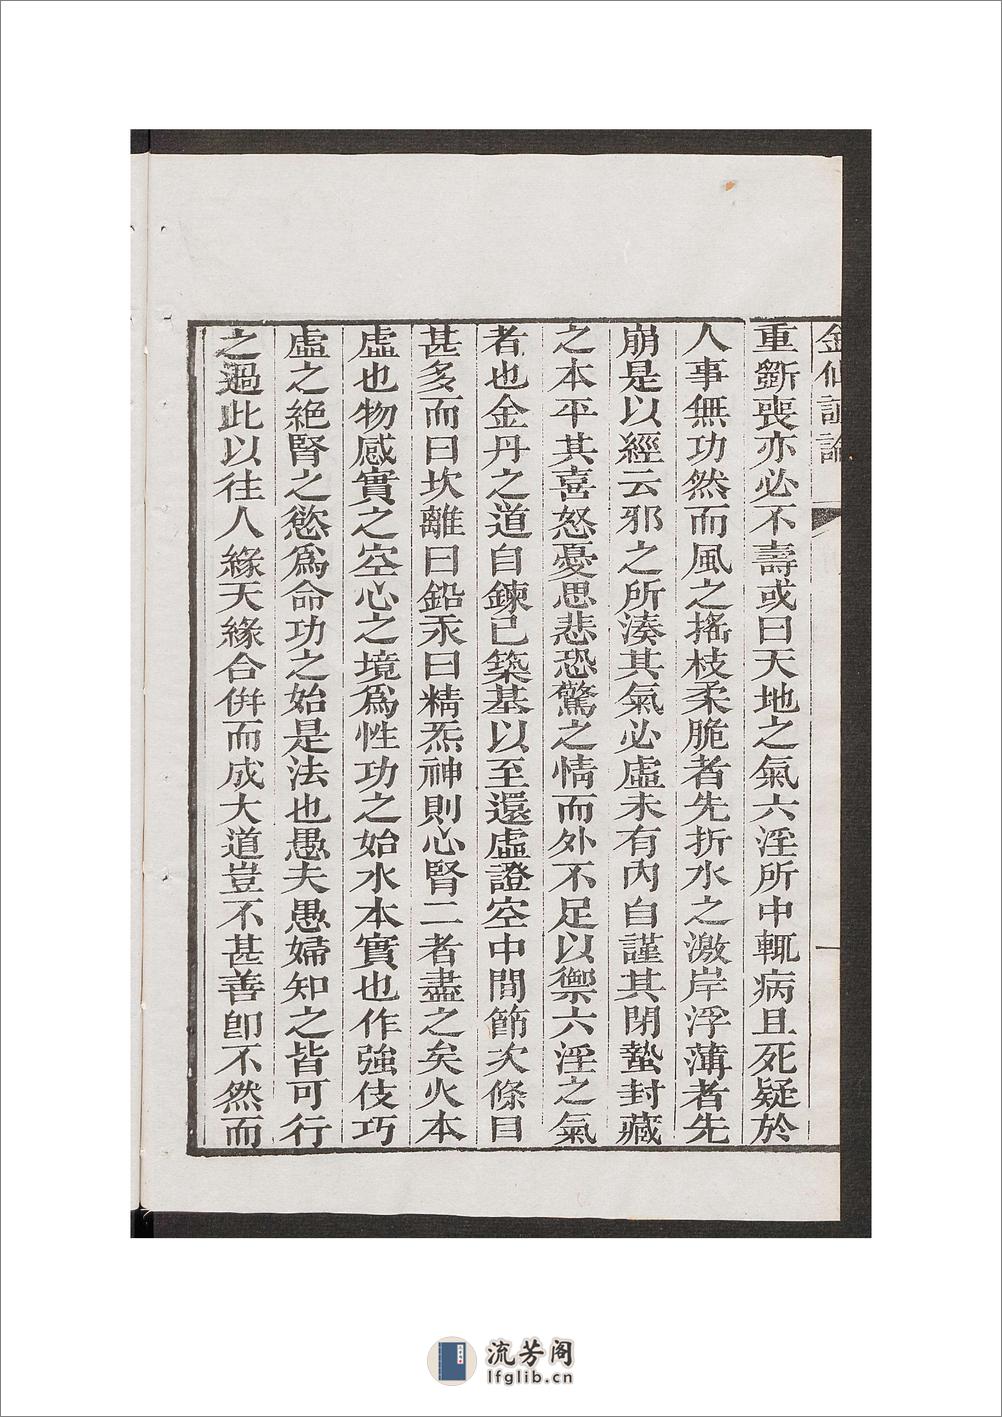 金仙證論
重斵喪亦必不壽或曰天地之氣六淫所中輒病且死疑於
人事無功然而風之搖枝柔脆者先折水之激岸浮薄者先
崩是以經云邪之所湊其氣必虛未有內自謹其閉蟄封藏
之本平其喜怒憂思悲恐驚之情而外不足以禦六淫之氣
者也金丹之道自鍊己築基以至還虛證空中間節次條目
甚多而曰坎離曰鉛汞曰精炁神則心腎二者盡之矣火本
虛也物感實之空心之境爲性功之始水本實也作強伎巧
虛之絕腎之慾爲命功之始是法也愚夫愚婦知之皆可行
之過此以往人緣天緣合倂而成大道豈不甚善卽不然而
流芳阁
lfglib.cn